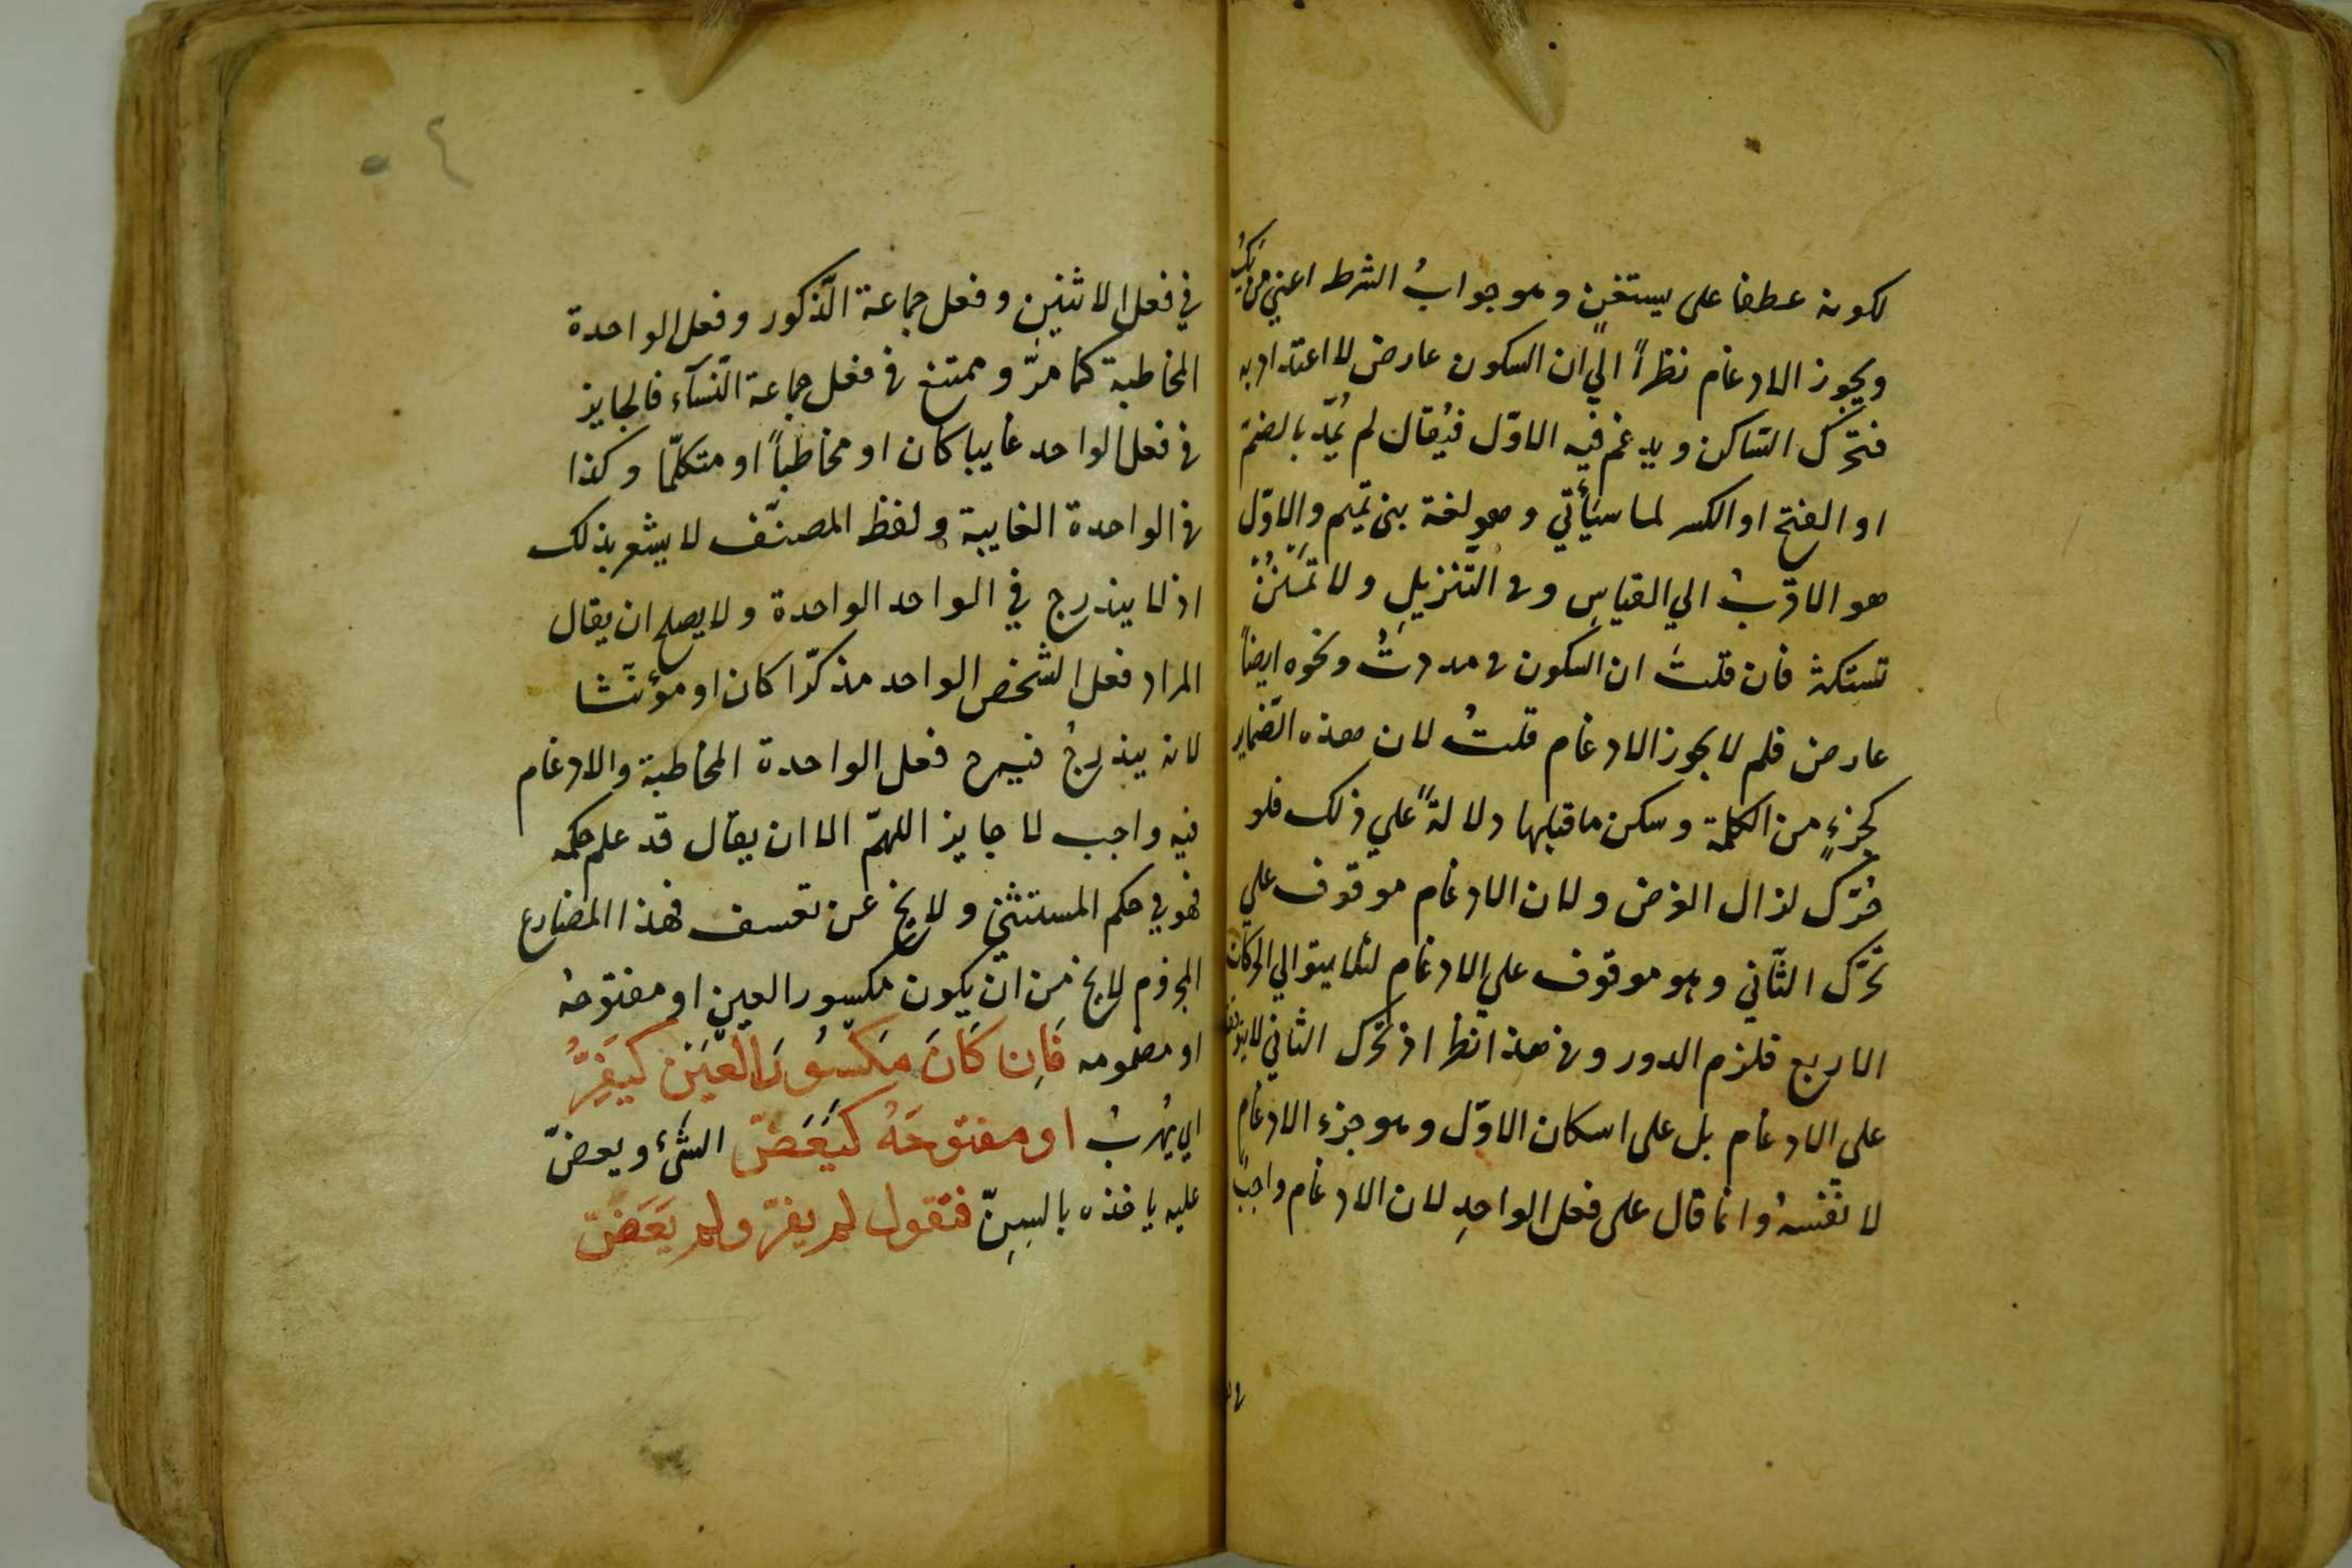 لكونه عطفا على يستغن وهو جوابُ الشرط اعني من يكُ
ويجوز الادغام نظراً الي ان السكون عارض لا اعتداد به
فتحرّك السّاكن ويدغم فيه الاوّل فيُقال لم يمُدّ بالضمّ
او الفتح او الكسر لما سيأتي وهو لغة بنى تميم والاوّل
هو الاقربُ الي القياسِ وفى التّنزيلِ ولا تمنُنْ
تستكثر فان قلتَ ان السكون فى مددتُ ونحوه ايضاً
عارض فلم لا يجوز الادغام قلتُ لان هذه الضّماير
كجزءٍ من الكلمة وسكن ما قبلها دلالةً علي ذلك فلو
حُرّك لزال الغرض ولان الادغام موقوف علي
تحرّك الثّاني وهو موقوف علي الادغام لئلا يتوالي الحركات
الاربع فلزم الدور وفى هذا نظر اذ تحرّك الثاني لا يتوقف
علي الادغام بل على اسكان الاوّل وهو جزء الادغام
لا نفسهُ وانما قال على فعل الواحدِ لان الادغام واجبٌ
٤٠
في فعل الاثنين وفعل جماعة الّذكور وفعل الواحدة
المخاطبة كما مرّ وممتنع فى فعل جماعة النّسآء فالجايز
فى فعل الواحد غايبا كان او مخاطباً او متكلّما وكذا
فى الواحدة الغايبة ولفظ المصنّف لا يشعر بذلك
اذ لا يندرج في الواحد الواحدة ولا يصلح ان يقال
المراد فعل الشّخص الواحد مذكّرا كان او مؤنّثا
لانه يندرجُ فيه ح فعل الواحدة المخاطبة والادغام
فيه واجب لا جايز اللهمّ الا ان يقال قد علم حكمه
فهو في حكم المستثني ولا يخ عن تعسف فهذا المضارع
المجزوم لا يخ من ان يكون مكسور العين او مفتوحهُ
او مضمومه فَاِن كَانَ مَكسُورَ العَيَن كَيَفِرُّ
اي يهرُبُ او مفتوحَهُ كَيَعَضّ الشّئ ويعضّ
عليه ياخذه بالسِنّ فتقول لم يفرّ ولم يَعَضّ